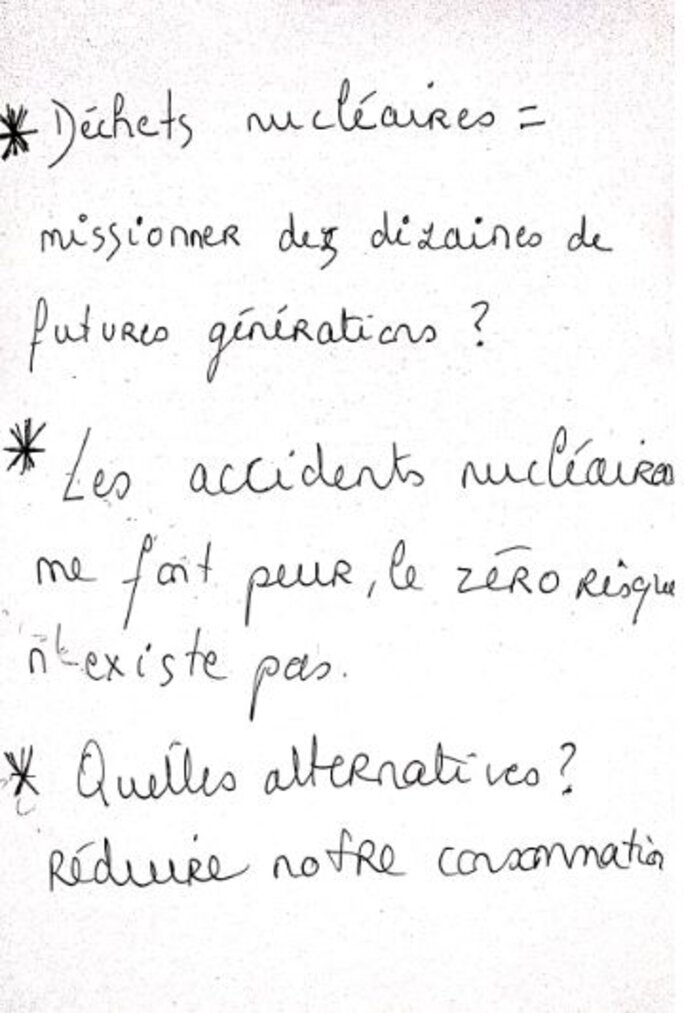 * Déchets nucléaires =
missionner des dizaines de
futures générations ?
* Les accidents nucléaires
me fait peur, le zéro risque
n'existe pas.
* Quelles alternatives ?
Réduire notre consommation